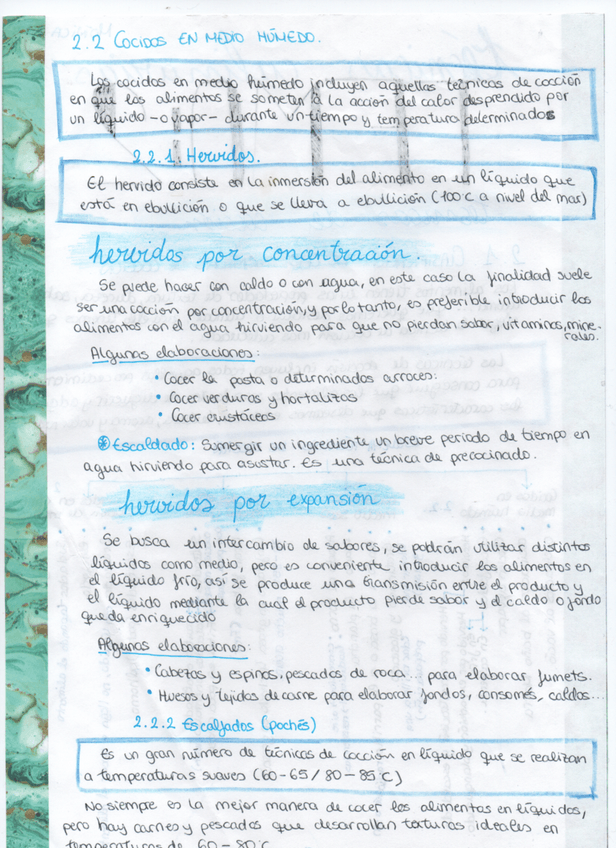 2.2 COCIDOS EN MEDIO HÚMEDO.
Los cocidos en medio húmedo incluyen aquellas técnicas de cocción
en que los alimentos se someten a la acción del calor desprendido por
un líquido -o vapor- durante un tiempo y temperatura determinados
2.2.1. Hervidos.
El hervido consiste en la inmersión del alimento en un líquido que
está en ebullición o que se lleva a ebullición (100ºC a nivel del mar)
hervidos por concentración.
Se puede hacer con caldo o con agua, en este caso la finalidad suele
ser una cocción por concentración, y por lo tanto, es preferible introducir los
alimentos con el agua hirviendo para que no pierdan sabor, vitaminas, mine-
rales.
Algunas elaboraciones:
• Cocer la pasta o determinados arroces:
• Cocer verduras y hortalizas
• Cocer crustáceos
Escaldado: Sumergir un ingrediente un breve periodo de tiempo en
agua hirviendo para asustar. Es una técnica de precocinado.
hervidos por expansión
Se busca un intercambio de sabores, se podrán utilizar distintos
líquidos como medio, pero es conveniente introducir los alimentos en
el líquido frío, así se produce una transmisión entre el producto y
el líquido mediante la cual el producto pierde sabor y el caldo o fondo
queda enriquecido
Algunas elaboraciones:
• Cabezas y espinas, pescados de roca... para elaborar fumets.
• Huesos y tejidos de carne para elaborar fondos, consomés, caldos...
2.2.2 Escalfados (pochés)
Es un gran número de técnicas de cocción en líquido que se realizan
a temperaturas suaves (60-65/80-85ºC)
No siempre es la mejor manera de cocer los alimentos en líquidos,
pero hay carnes y pescados que desarrollan texturas ideales en
temperaturas de 60-80ºC